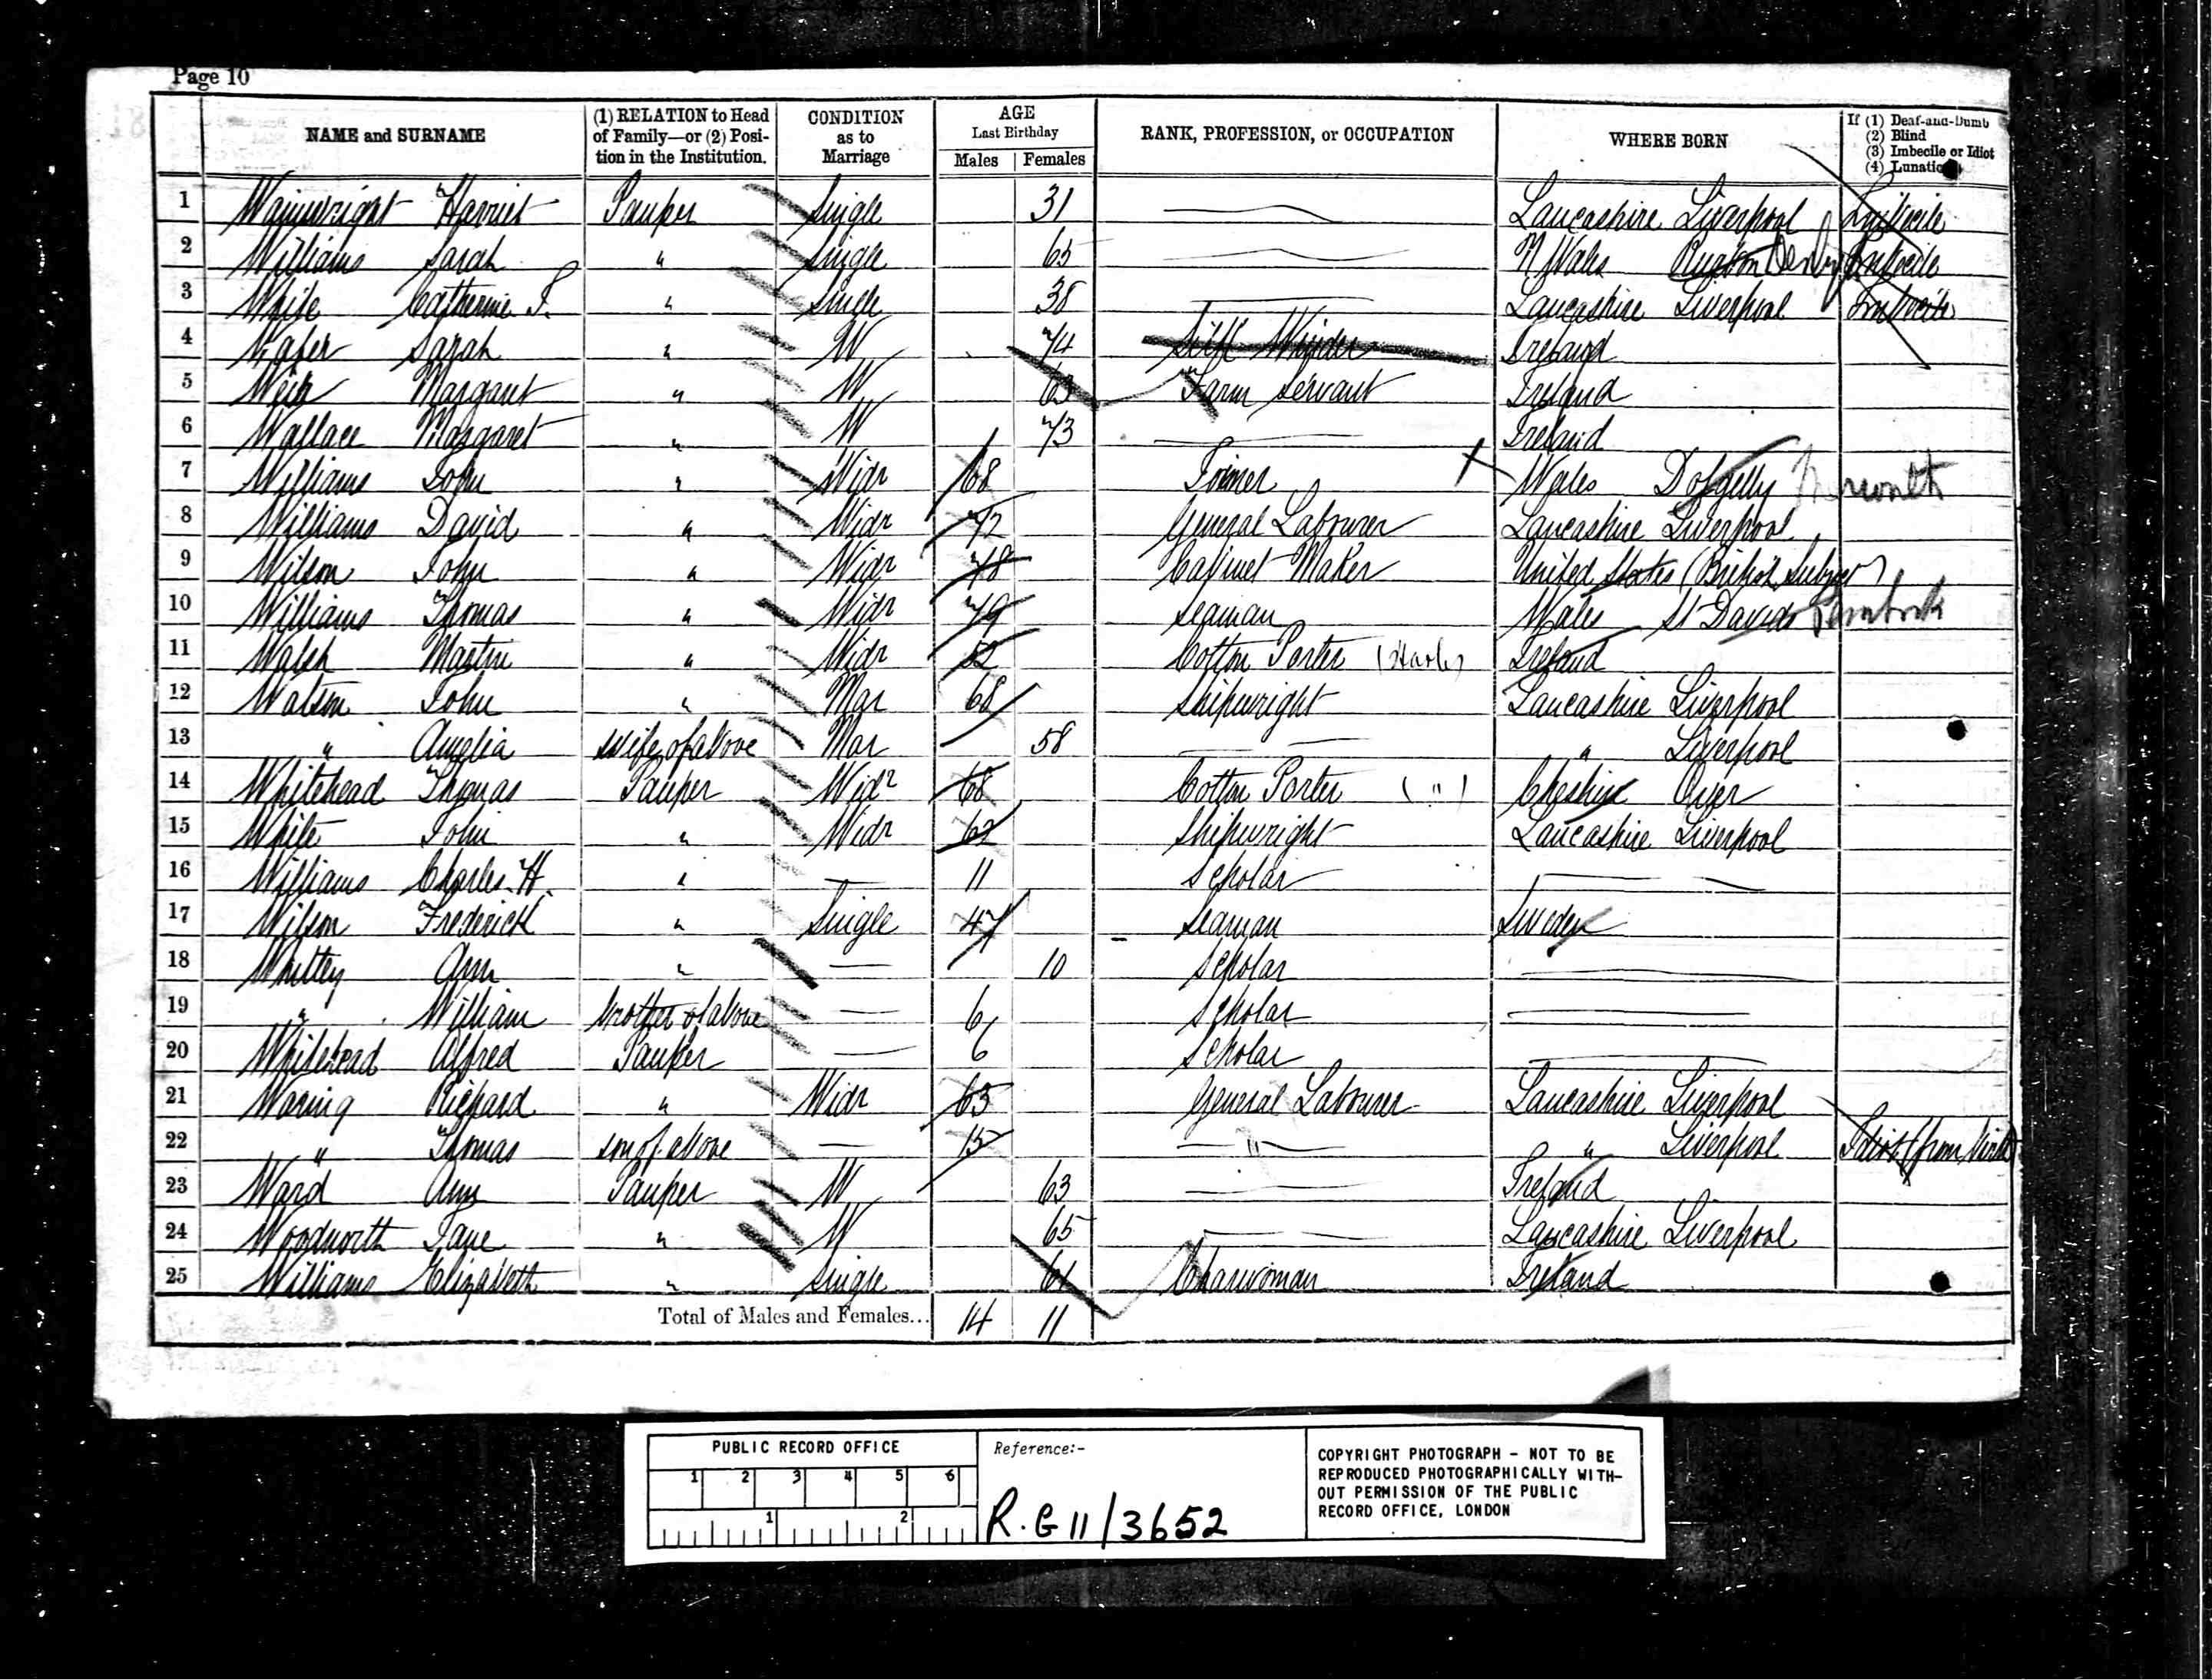 Page 10
NAME and SURNAME (1) RELATION to Head of Family—or (2) Position in the Institution. CONDITION as to Marriage AGE Last Birthday Males Females RANK, PROFESSION, or OCCUPATION WHERE BORN If (1) Deaf-and-Dumb (2) Blind (3) Imbecile or Idiot (4) Lunatic
1 Wainwright Harriet Pauper Single 31 — Lancashire Liverpool Imbecile
2 Williams Sarah " Single 65 — N Wales Imbecile
3 White Catherine F. " Single 38 — Lancashire Liverpool Imbecile
4 Wafer Sarah " W 74 Silk Winder Ireland
5 Weir Margaret " W 63 Farm Servant Ireland
6 Wallace Margaret " W 73 — Ireland
7 Williams John " Widr 68 Joiner Wales Dolgelly
8 Williams David " Widr 72 General Labourer Lancashire Liverpool
9 Wilson John " Widr 78 Cabinet Maker United States (British Subject)
10 Williams Thomas " Widr 79 Seaman Wales St Davids Pembrok
11 Walsh Martin " Widr 62 Cotton Porter Ireland
12 Watson John " Mar 68 Shipwright Lancashire Liverpool
13 " Amelia wife of above Mar 58 — " Liverpool
14 Whitehead Thomas Pauper Widr 68 Cotton Porter ( " ) Cheshire Over
15 White John " Widr 62 Shipwright Lancashire Liverpool
16 Williams Charles H. " — 11 Scholar —
17 Wilson Frederick " Single 47 Seaman Sweden
18 Whittey Ann " — 10 Scholar —
19 " William brother of above — 6 Scholar —
20 Whitehead Alfred Pauper — 6 Scholar —
21 Waring Richard " Widr 63 General Labourer Lancashire Liverpool
22 " Thomas son of above — 15 — " — " Liverpool Idiot (from birth
23 Ward Ann Pauper W 63 — Ireland
24 Woodworth Jane " W 65 — Lancashire Liverpool
25 Williams Elizabeth " Single 61 Charwoman Ireland
Total of Males and Females... 14 11
PUBLIC RECORD OFFICE
1 2 3 4 5 6
1 2
Reference:-
R.G 11/3652
COPYRIGHT PHOTOGRAPH - NOT TO BE
REPRODUCED PHOTOGRAPHICALLY WITH-
OUT PERMISSION OF THE PUBLIC
RECORD OFFICE, LONDON